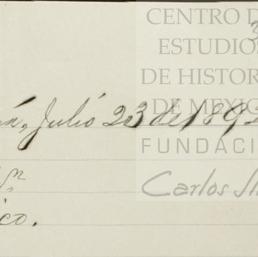 CENTRO D
ESTUDIO
DE HISTOR
DE MÉXIC
FUNDACI
Carlos Sl
Julió 23 de 189
co.